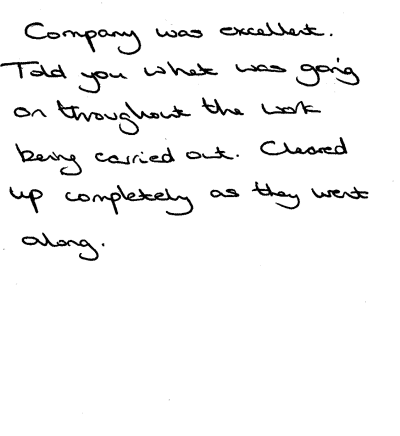 Company was excellent.
Told you what was going
on throughout the work
being carried out. Cleared
up completely as they went
along.